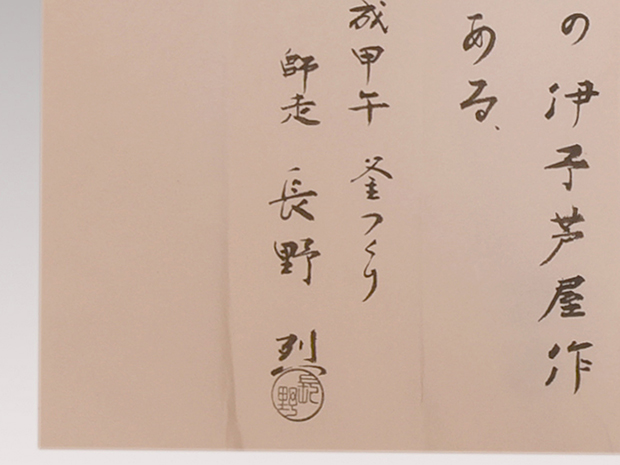 の伊予芦屋作
ある、
成甲午 釜つくり
師走 長野 烈
長野